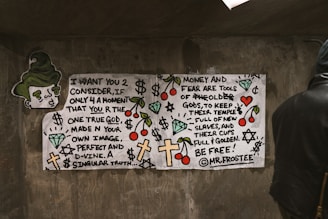 I WANT YOU 2
CONSIDER, IF
ONLY 4 A MOMENT
THAT YOU R THE
ONE TRUE GOD,
MADE IN YOUR
OWN IMAGE,
PERFECT AND
D-VINE. A
SINGULAR TRUTH...
MONEY AND
FEAR ARE TOOLS
OF THE OLDER
GODS, TO KEEP
THEIR TEMPLE
FULL OF NEW
SLAVES, AND
THEIR CUPS
FULL & GOLDEN.
BE FREE!
©MR.FROSTEE